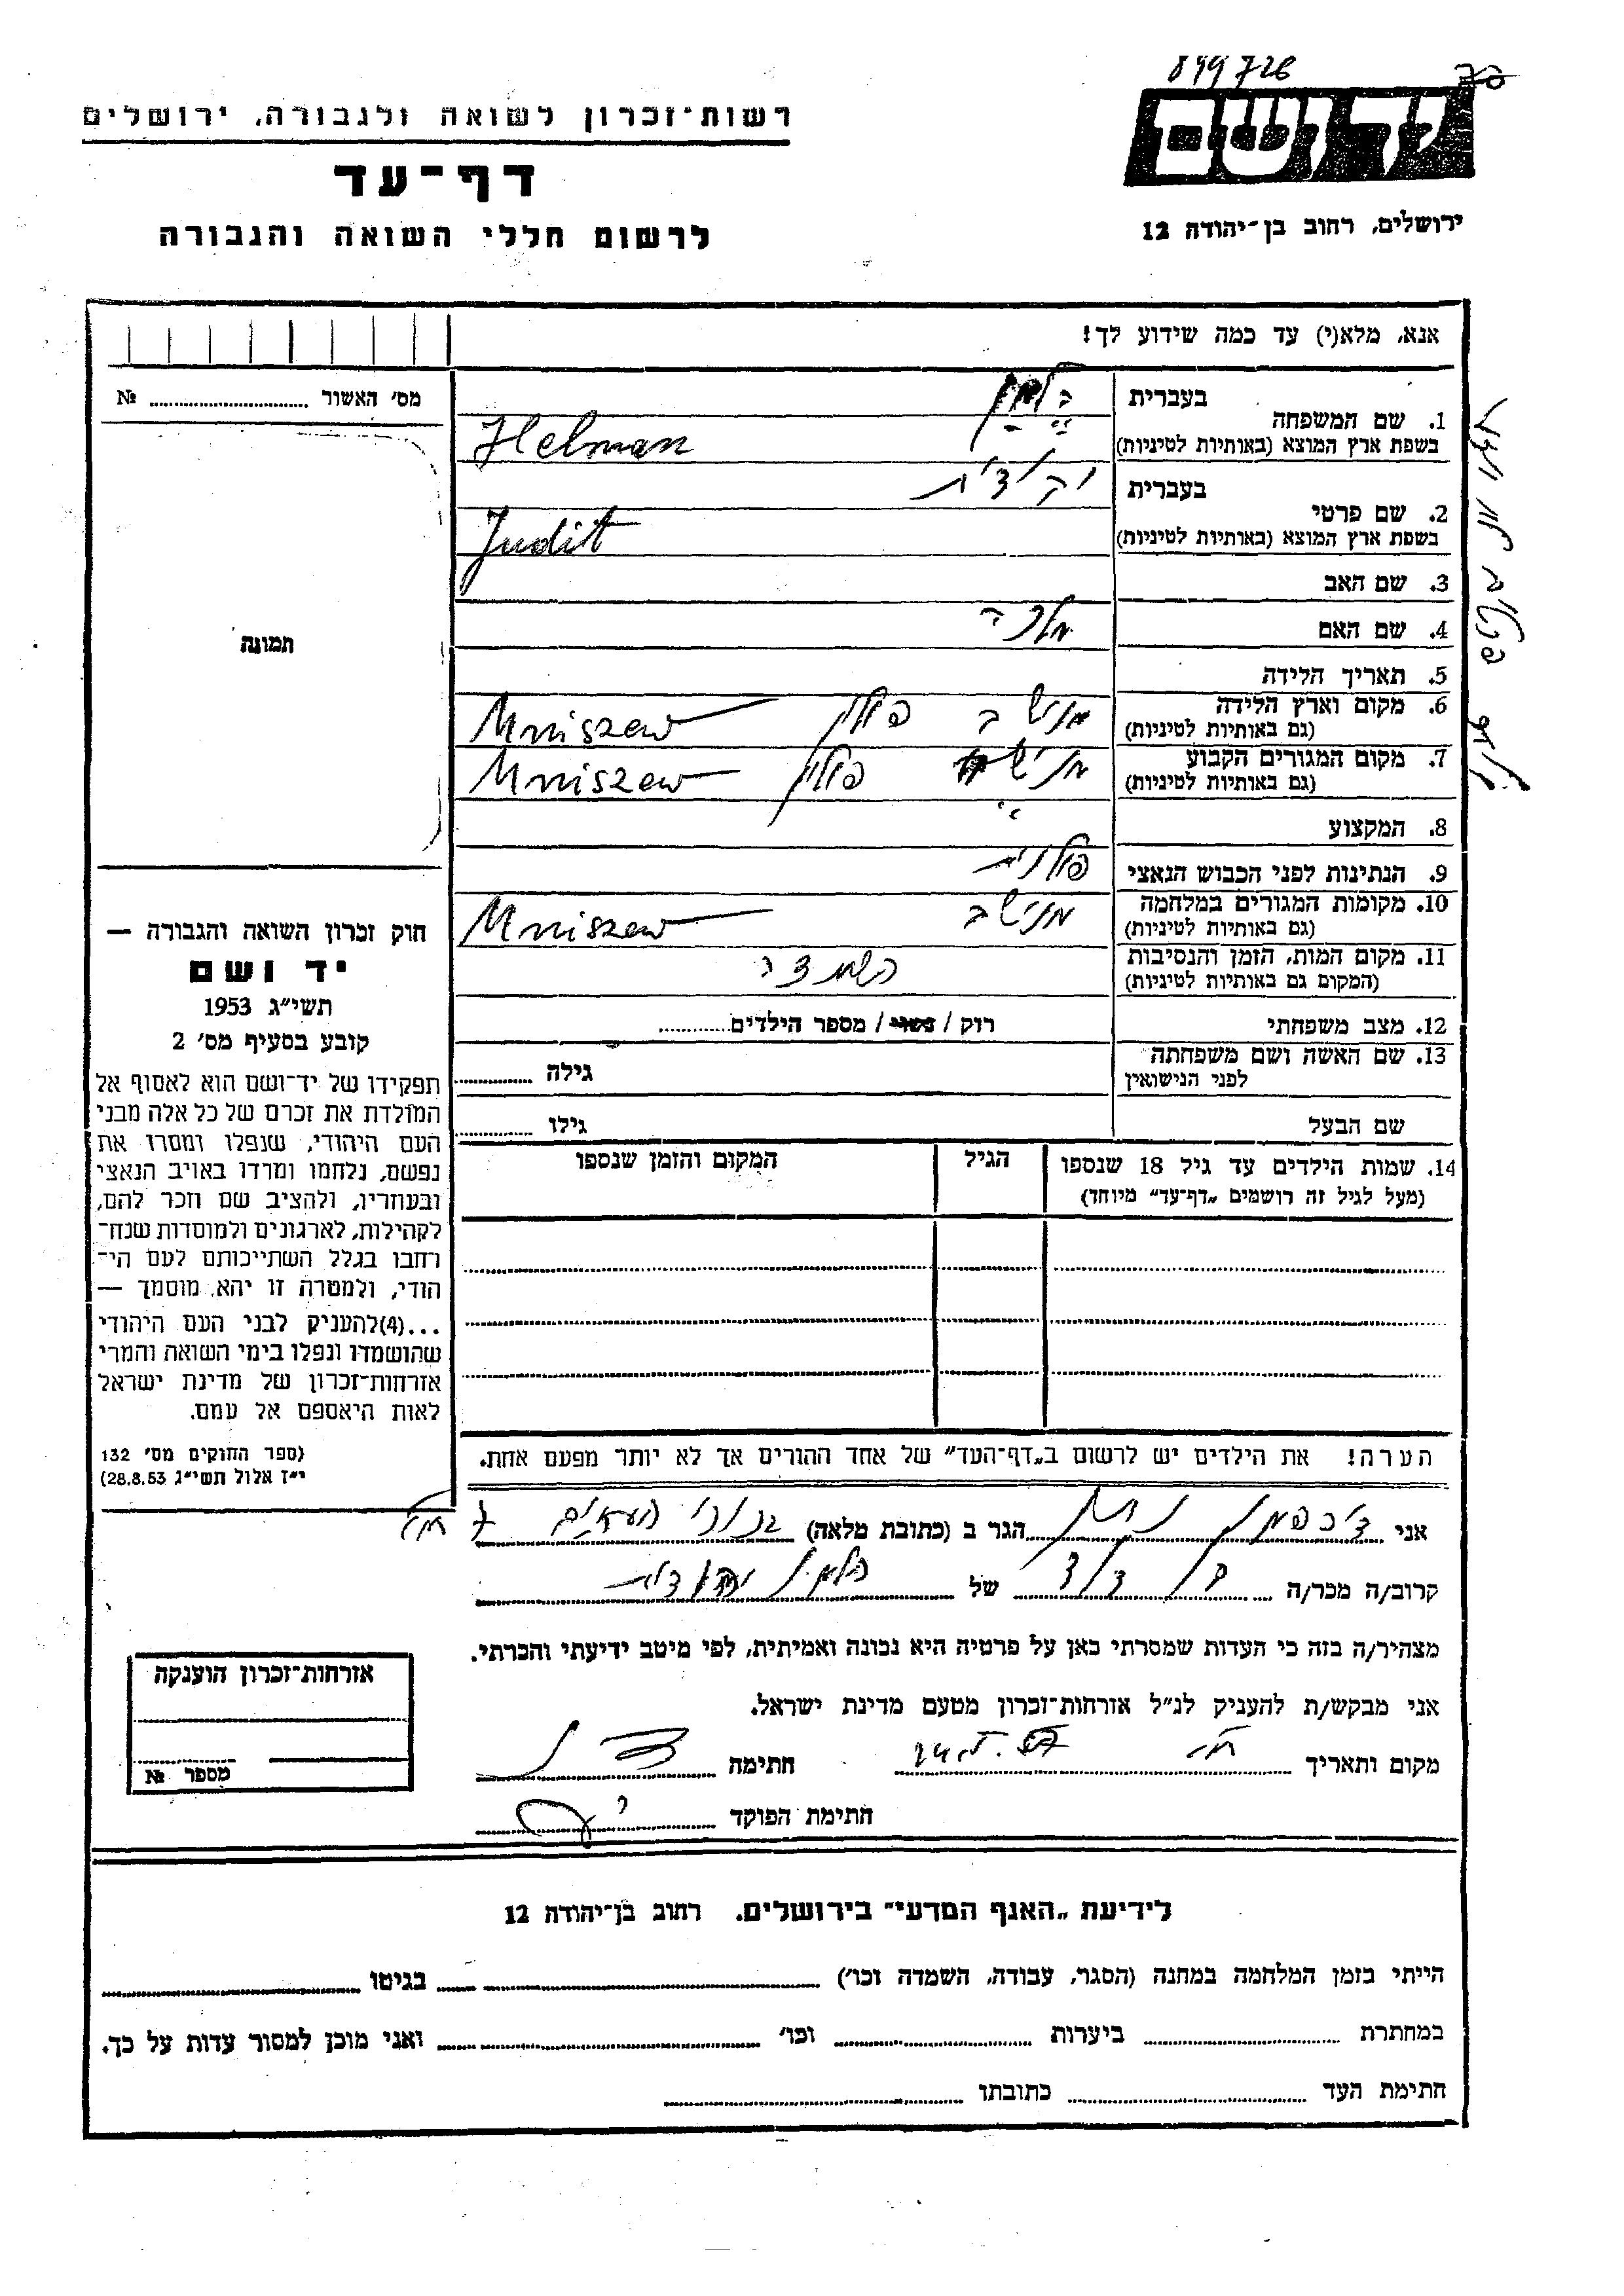 899726
יד ושם
רשות־זכרון לשואה ולגבורה, ירושלים
דף־עד
לרשום חללי השואה והגבורה
ירושלים, רחוב בן־יהודה 12
אנא, מלא(י) עד כמה שידוע לך!
מס' האשור № 
1. שם המשפחה
בעברית הלמן
בשפת ארץ המוצא (באותיות לטיניות) Helman
2. שם פרטי
בעברית
בשפת ארץ המוצא (באותיות לטיניות) Judit
3. שם האב
4. שם האם מלכה
5. תאריך הלידה
6. מקום וארץ הלידה
(גם באותיות לטיניות) מנישב פולין Mniszew
7. מקום המגורים הקבוע
(גם באותיות לטיניות) פולין Mniszew
8. המקצוע
9. הנתינות לפני הכבוש הנאצי פולנית
10. מקומות המגורים במלחמה
(גם באותיות לטיניות) מנישב Mniszew
11. מקום המות, הזמן והנסיבות
(המקום גם באותיות לטיניות) השמדה
12. מצב משפחתי רוק / נשוי / מספר הילדים
13. שם האשה ושם משפחתה
לפני הנישואין גילה
שם הבעל גילו
14. שמות הילדים עד גיל 18 שנספו
(מעל לגיל זה רושמים „דף־עד” מיוחד)
הגיל
המקום והזמן שנספו
תמונה
חוק זכרון השואה והגבורה —
יד ושם
תשי"ג 1953
קובע בסעיף מס' 2
תפקידו של יד־ושם הוא לאסוף אל
המולדת את זכרם של כל אלה מבני
העם היהודי, שנפלו ומסרו את
נפשם, נלחמו ומרדו באויב הנאצי
ובעוזריו, ולהציב שם וזכר להם,
לקהילות, לארגונים ולמוסדות שנח־
רבו בגלל השתייכותם לעם הי־
הודי, ולמטרה זו יהא מוסמך —
...(4)להעניק לבני העם היהודי
שהושמדו ונפלו בימי השואה והמרי
אזרחות־זכרון של מדינת ישראל
לאות היאספם אל עמם.
(ספר החוקים מס' 132
י"ז אלול תשי"ג 28.8.53)
הערה! את הילדים יש לרשום ב„דף־העד” של אחד ההורים אך לא יותר מפעם אחת.
אני הגר ב (כתובת מלאה)
קרוב/ה מכר/ה דוד של
מצהיר/ה בזה כי העדות שמסרתי כאן על פרטיה היא נכונה ואמיתית, לפי מיטב ידיעתי והכרתי.
אני מבקש/ת להעניק לנ"ל אזרחות־זכרון מטעם מדינת ישראל.
מקום ותאריך חתימה
חתימת הפוקד
אזרחות־זכרון הוענקה
מספר №
לידיעת „האגף המדעי” בירושלים. רחוב בן־יהודה 12
הייתי בזמן המלחמה במחנה (הסגר, עבודה, השמדה וכו') בגיטו
במחתרת ביערות וכו' ואני מוכן למסור עדות על כך.
חתימת העד כתובתו